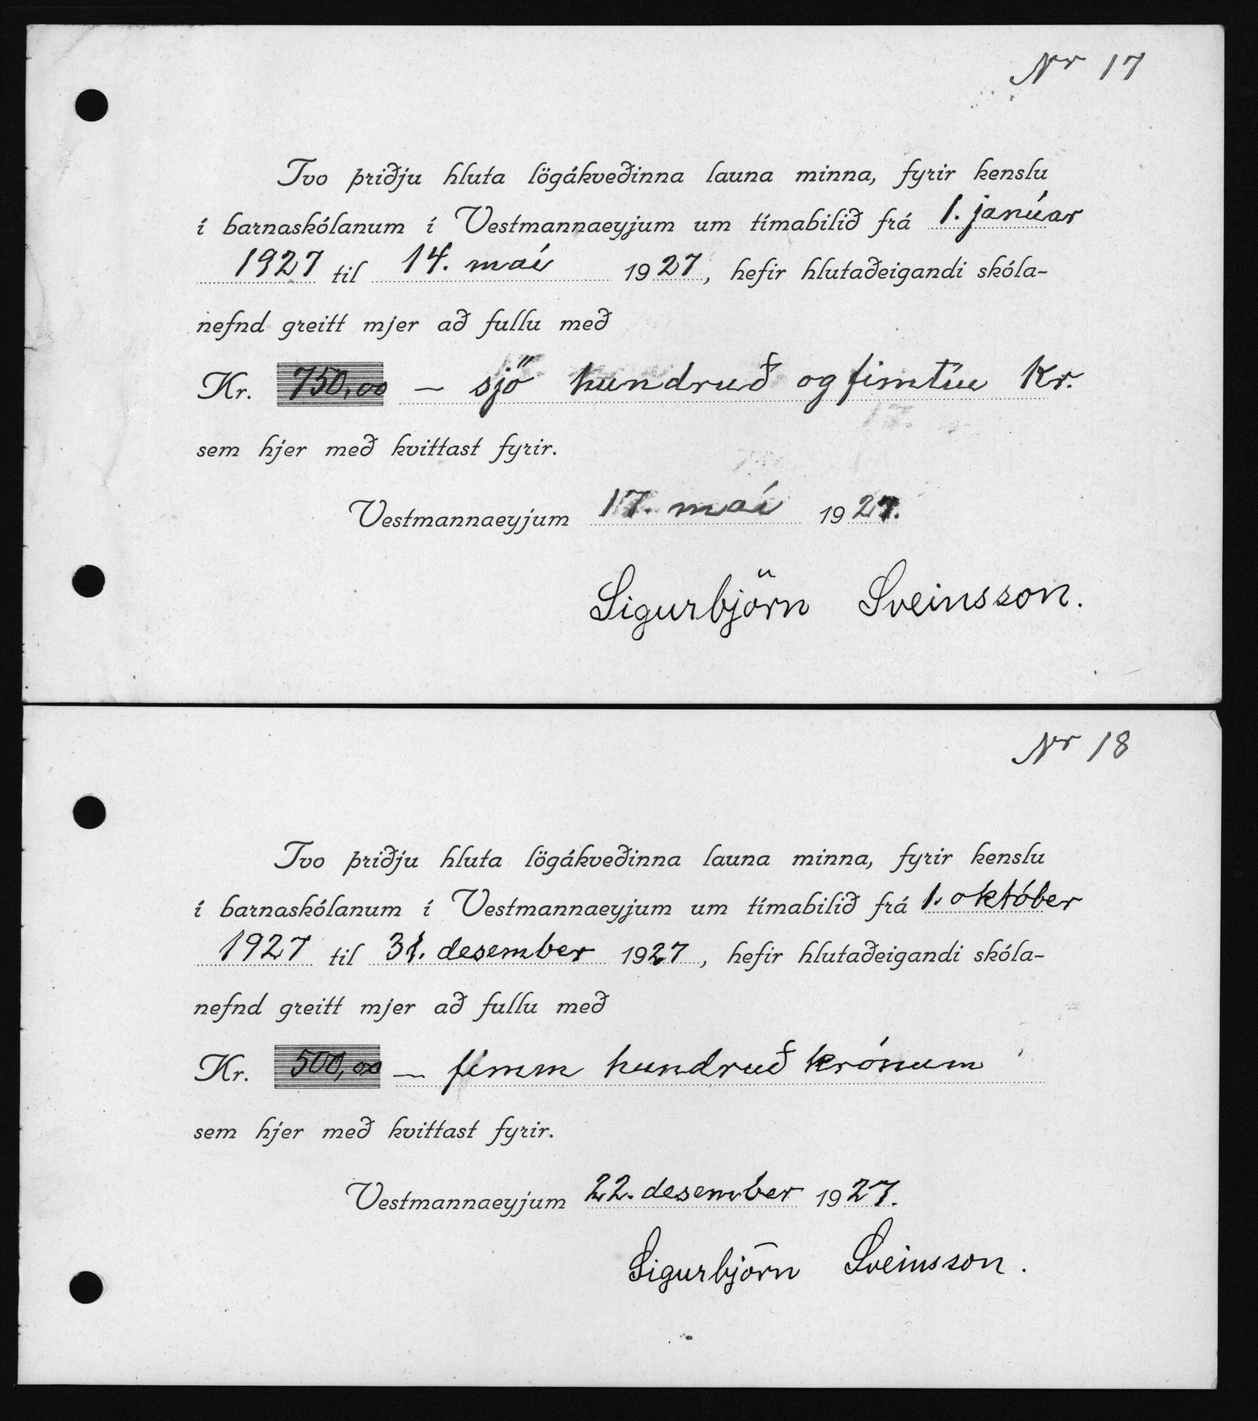 Nr 17
Tvo þriðju hluta lögákveðinna launa minna, fyrir kenslu
í barnaskólanum í Vestmannaeyjum um tímabilið frá 1. janúar
1927 til 14. maí 1927, hefir hlutaðeigandi skóla-
nefnd greitt mjer að fullu með
Kr. 750,00 — sjö hundruð og fimtíu kr.
sem hjer með kvittast fyrir.
Vestmannaeyjum 17. maí 1927.
Sigurbjörn Sveinsson.
Nr 18
Tvo þriðju hluta lögákveðinna launa minna, fyrir kenslu
í barnaskólanum í Vestmannaeyjum um tímabilið frá 1. október
1927 til 31. desember 1927, hefir hlutaðeigandi skóla-
nefnd greitt mjer að fullu með
Kr. 500,00 — fimm hundruð krónum
sem hjer með kvittast fyrir.
Vestmannaeyjum 22. desember 1927.
Sigurbjörn Sveinsson.